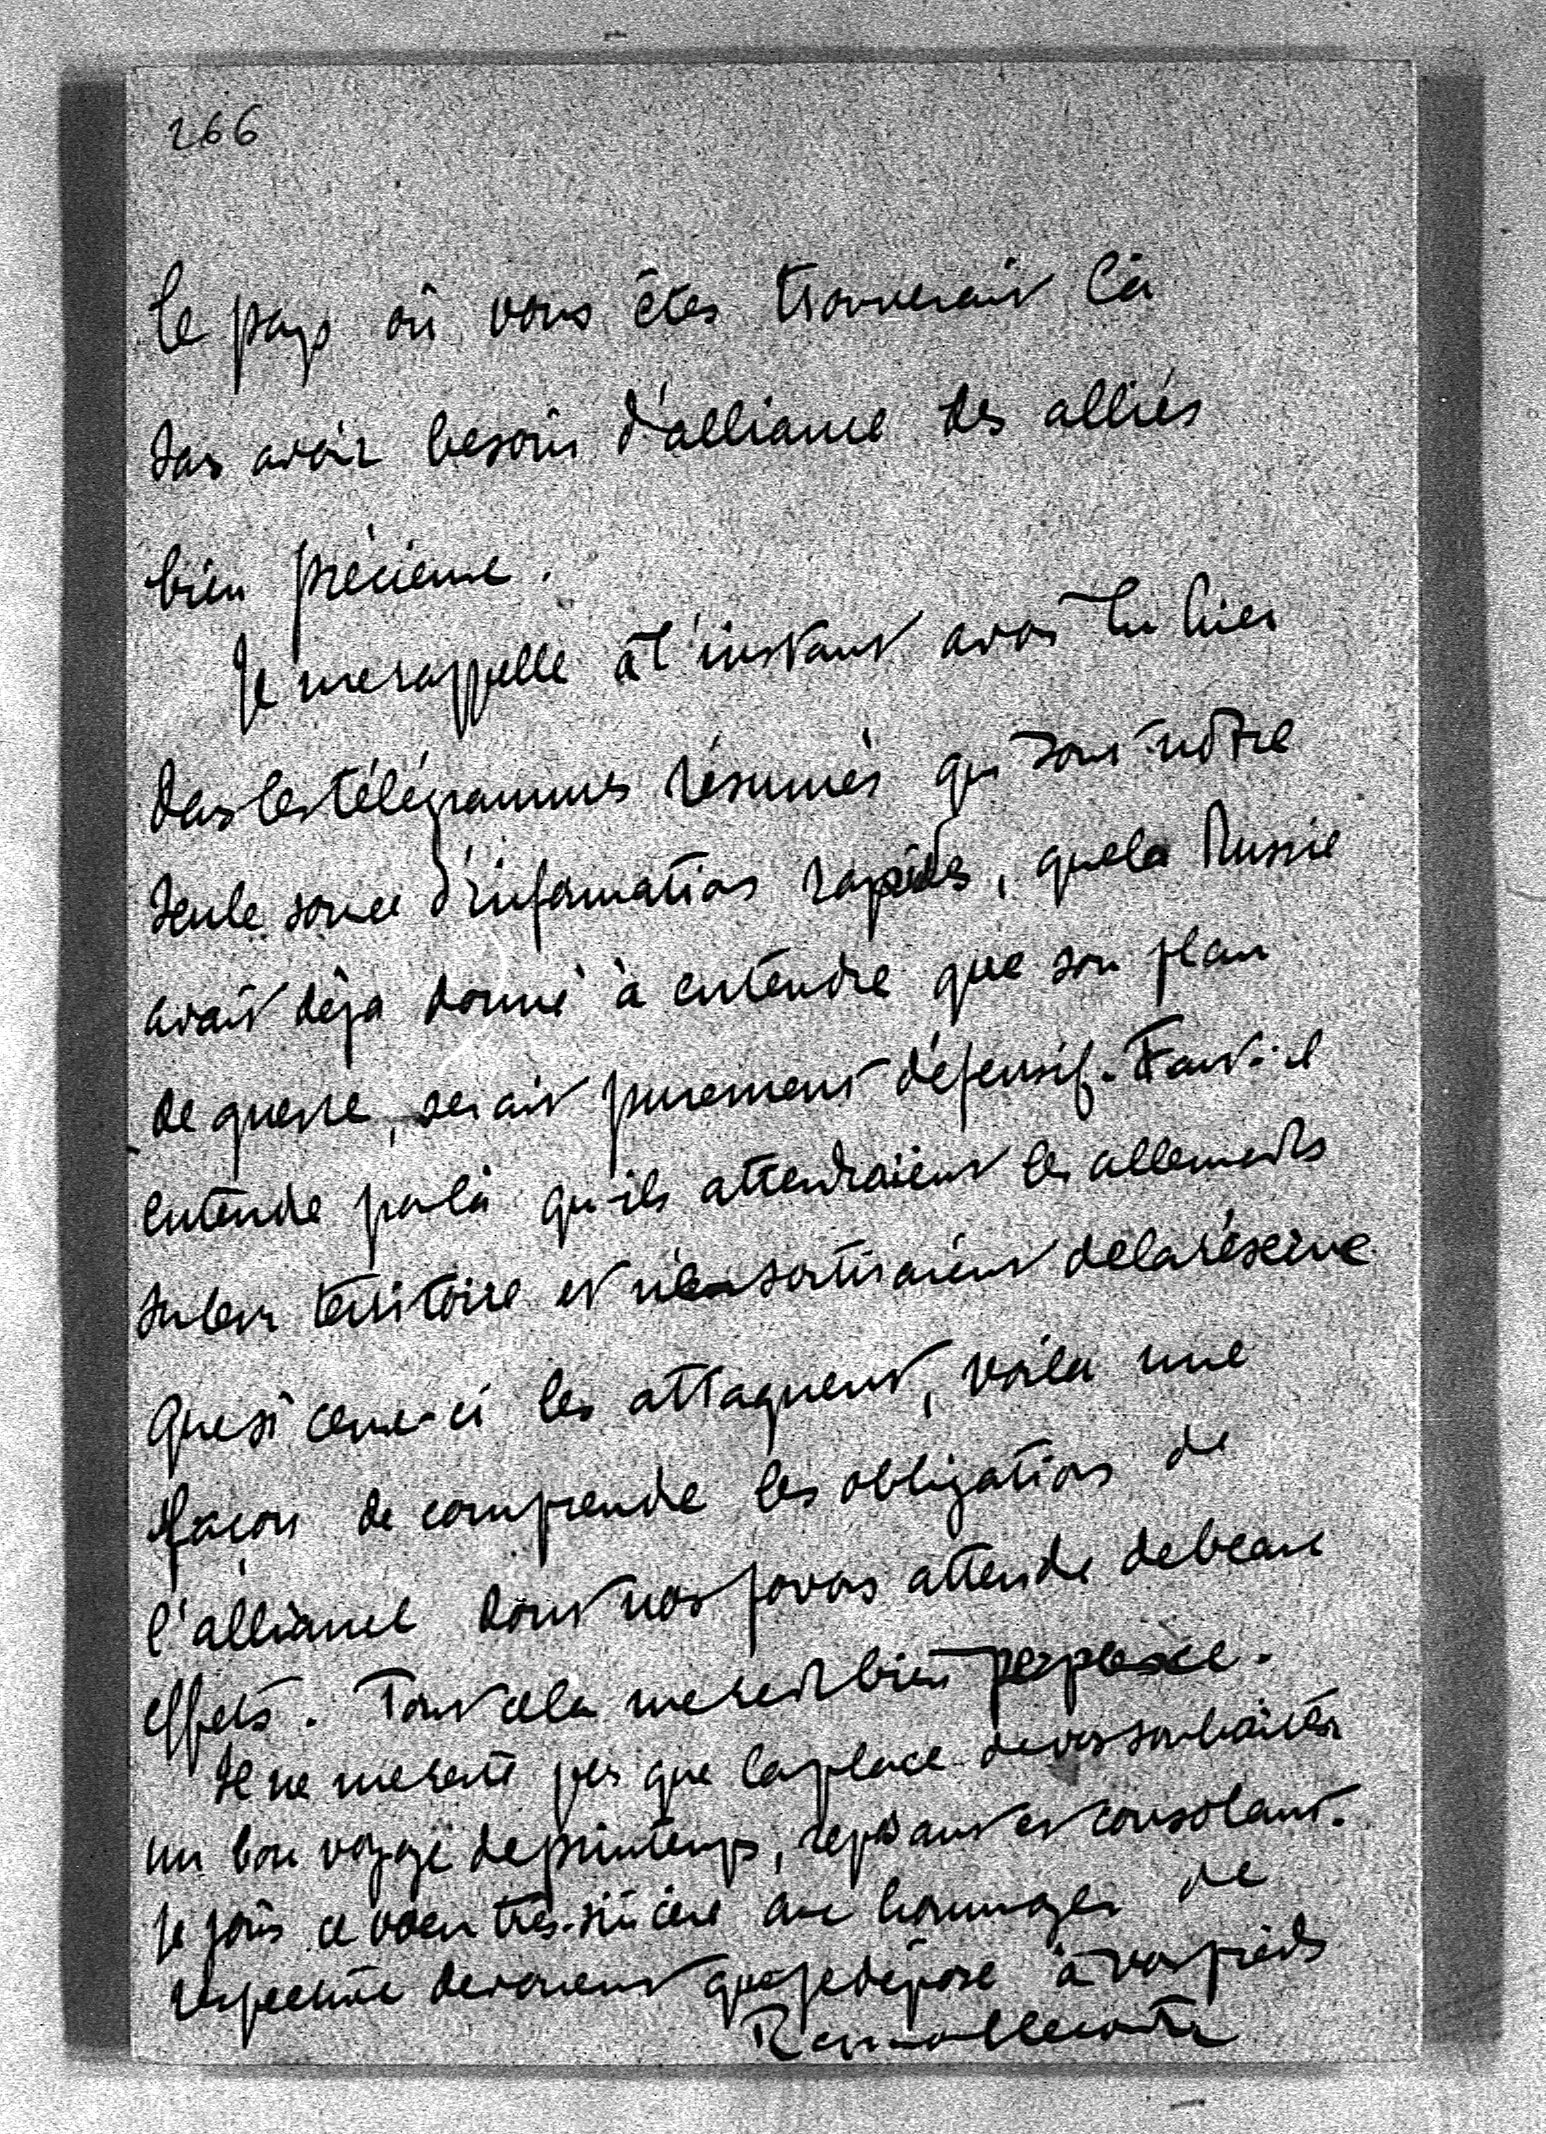 266
le pays où vous êtes trouverait là
sans avoir besoin d'alliance des alliés
bien précieux.
Je me rappelle à l'instant avoir lu hier
dans les télégrammes résumés qui sont notre
seule source d'informations rapides, que la Russie
avait déjà donné à entendre que son plan
de guerre, serait purement défensif. Faut-il
entendre par là qu'ils attendraient les allemands
sur leur territoire et n'en sortiraient de la réserve
que si ceux-ci les attaquent, voilà une
façon de comprendre les obligations de
l'alliance dont nous pouvons attendre de beaux
effets. Tout cela me rend bien perplexe.
Il ne me reste pas que la place de vous souhaiter
un bon voyage de printemps, reposant et consolant.
Je joins ce vœu très-sincère aux hommages de
respectueux dévouement que je dépose à vos pieds